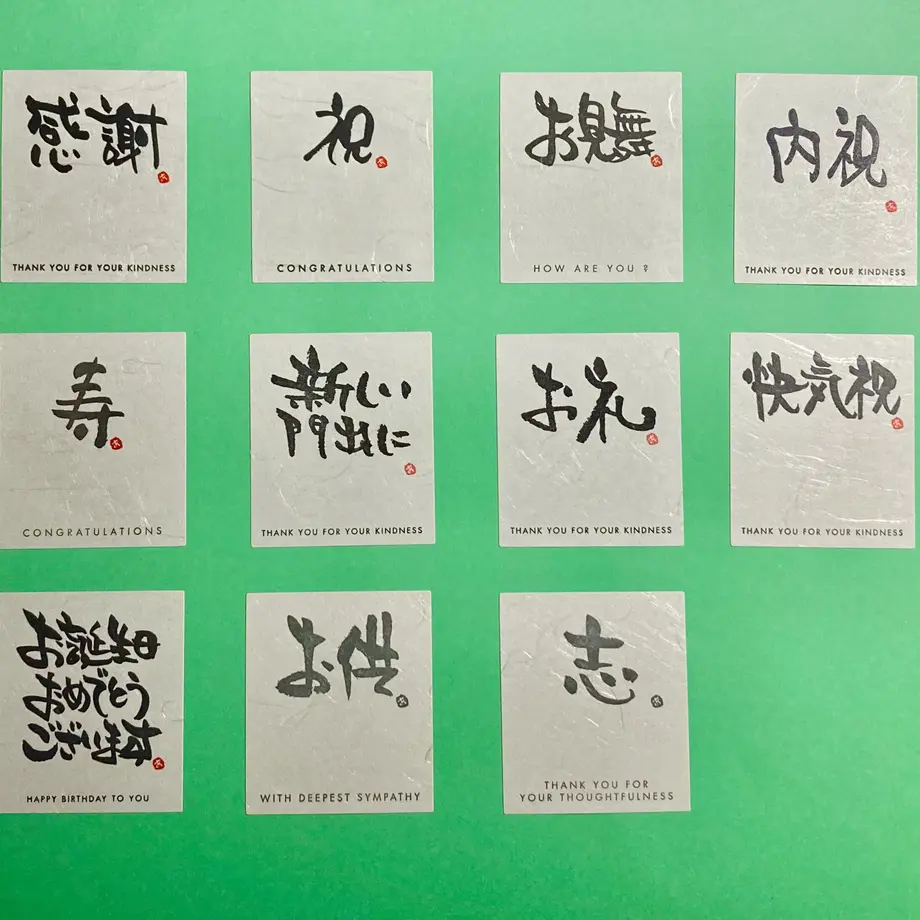 感謝
THANK YOU FOR YOUR KINDNESS
祝
CONGRATULATIONS
お見舞
HOW ARE YOU ?
内祝
THANK YOU FOR YOUR KINDNESS
寿
CONGRATULATIONS
新しい
門出に
THANK YOU FOR YOUR KINDNESS
お礼
THANK YOU FOR YOUR KINDNESS
快気祝
THANK YOU FOR YOUR KINDNESS
お誕生日
おめでとう
ございます
HAPPY BIRTHDAY TO YOU
お供
WITH DEEPEST SYMPATHY
志
THANK YOU FOR
YOUR THOUGHTFULNESS